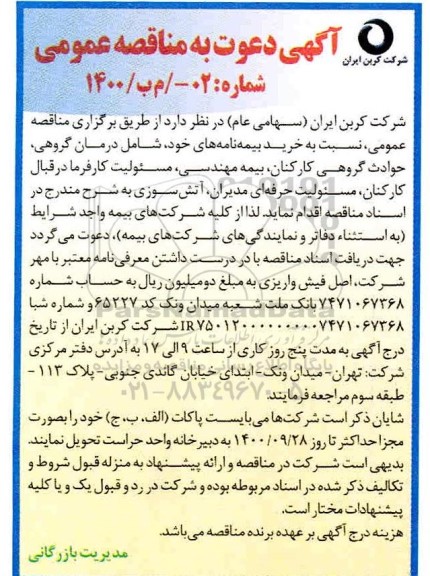 شرکت کربن ایران
آگهی دعوت به مناقصه عمومی
شماره: ۰۲-/م‌ب/۱۴۰۰
شرکت کربن ایران (سهامی عام) در نظر دارد از طریق برگزاری مناقصه
عمومی، نسبت به خرید بیمه‌نامه‌های خود، شامل درمان گروهی،
حوادث گروهی کارکنان، بیمه مهندسی، مسئولیت کارفرما در قبال
کارکنان، مسئولیت حرفه‌ای مدیران، آتش‌سوزی به شرح مندرج در
اسناد مناقصه اقدام نماید. لذا از کلیه شرکت‌های بیمه واجد شرایط
(به استثناء دفاتر و نمایندگی‌های شرکت‌های بیمه)، دعوت می‌گردد
جهت دریافت اسناد مناقصه با در دست داشتن معرفی‌نامه معتبر با مهر
شرکت، اصل فیش واریزی به مبلغ دو میلیون ریال به حساب شماره
۷۴۷۱۰۶۷۳۶۸ بانک ملت شعبه میدان ونک کد ۶۵۲۲۷ و شماره شبا
IR۷۵۰۱۲۰۰۰۰۰۰۰۰۰۰۷۴۷۱۰۶۷۳۶۸ شرکت کربن ایران از تاریخ
درج آگهی به مدت پنج روز کاری از ساعت ۹ الی ۱۷ به آدرس دفتر مرکزی
شرکت: تهران- میدان ونک- ابتدای خیابان گاندی جنوبی- پلاک ۱۱۳ -
طبقه سوم مراجعه فرمایند.
شایان ذکر است شرکت‌ها می‌بایست پاکات (الف، ب، ج) خود را بصورت
مجزا حداکثر تا روز ۱۴۰۰/۰۹/۲۸ به دبیرخانه واحد حراست تحویل نمایند.
بدیهی است شرکت در مناقصه و ارائه پیشنهاد به منزله قبول شروط و
تکالیف ذکر شده در اسناد مربوطه بوده و شرکت در رد و قبول یک و یا کلیه
پیشنهادات مختار است.
هزینه درج آگهی بر عهده برنده مناقصه می‌باشد.
مدیریت بازرگانی
ParsNamadData
۰۲۱-۸۸۳۴۹۶۷۰